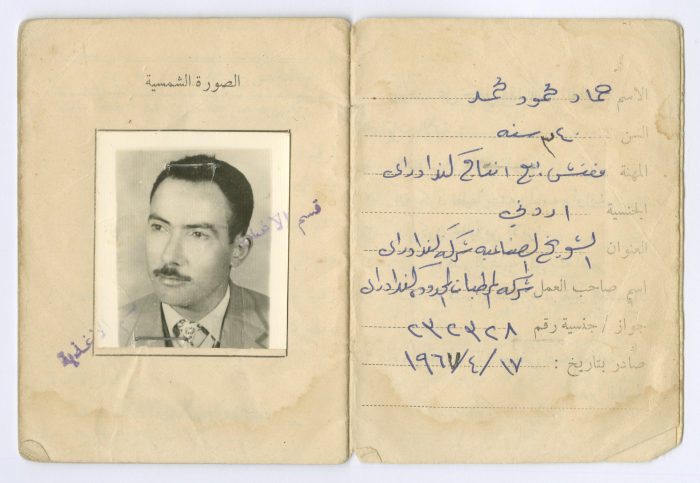 الصورة الشمسية
قسم الاغذية
الاغذية
الاسم حماد محمود محمد
السن ٤٠ سنه
المهنة مفتش بيع انتاج كندا دراي
الجنسية اردني
العنوان الشويخ الصناعيه شركة كندا دراي
اسم صاحب العمل شركة المرطبات المحدودة كندا دراي
جواز / جنسية رقم ٢٣٢٣٢٨
صادر بتاريخ : ١٩٦٧/٤/١٧